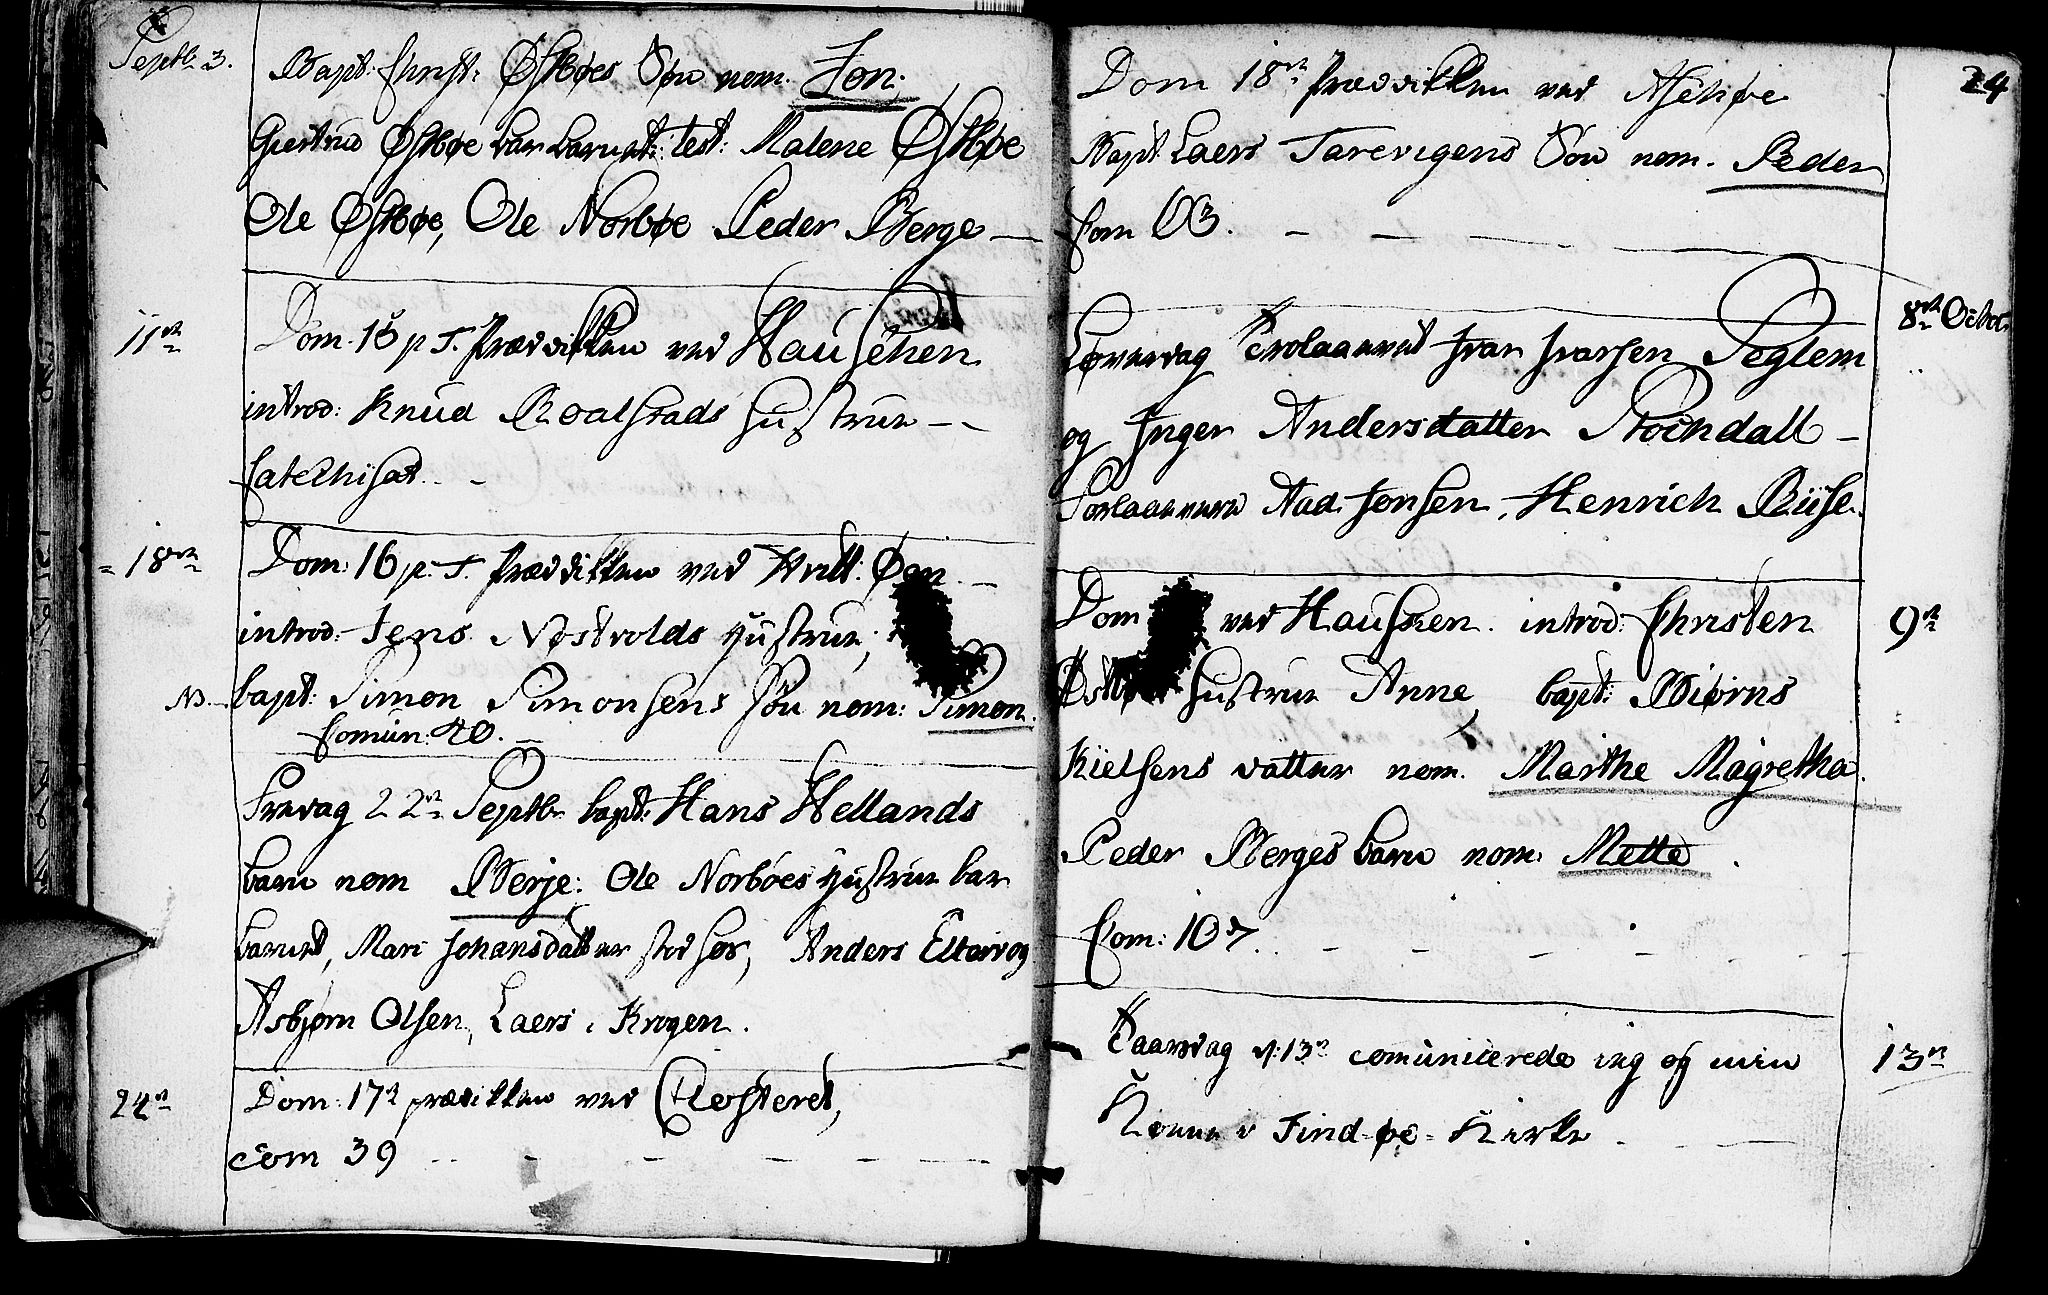 Septb: 3.
Bapt: Christ: Østbøes Søn nom. Jon.
Giertrud Østbøe bar barnet: test: Malene Østbøe
Ole Østbøe, Ole Norbøe Peder Berge
11te
Dom. 15 p T. Prædikken ved Hauschen
introd: Knud Roalstads Hustrue
Catechisat.
18de
Dom: 16 p: T. Prædikken ved Hvitt: Øen
introd: Jens Nøstvolds Hustrue,
NB. bapt: Simon Simonsens Søn nom: Simon.
Comun: 40.
Fredag 22de Septb bapt: Hans Hellands
barn nom Berje: Ole Norbøes Hustrue bar
barnet, Mari Johansdatter stod hos, Anders Eltervog
Asbjørn Olsen, Laers i Krogen.
24de
Dom: 17de prædikken ved Closteret,
Com 39
24
Dom 18de Prædikken ved Aschøe
Bapt: Laers Tarevigens Søn nom. Peder
Com 63.
8de Octbr
Løverdag Trolaavet Ivar Ivarsen Teglem
og Inger Andersdatter Stochdall
Forlaavere Aad Jonsen, Henrich Riise.
9de
Dom ved Hauschen. introd: Christen
Hustrue Anne, bapt: Biørns
Kielsens datter nom. Marthe Magretha.
Peder Berges barn nom: Mette.
Com: 107.
13de
Taarsdag d: 13de comunicerede ieg og min
Konne i Find-øe-Kirke.